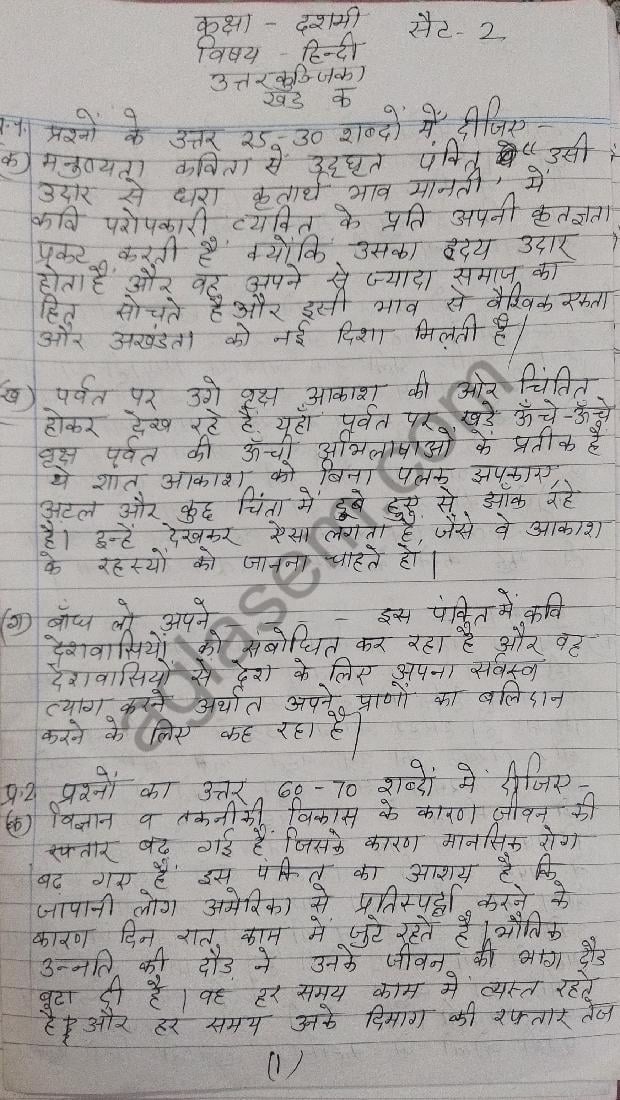 कक्षा - दशमी सैट - 2
विषय - हिन्दी
उत्तरकुञ्जिका
खंड क
प्र.1. प्रश्नों के उत्तर 25-30 शब्दों में दीजिए -
(क) मनुष्यता कविता से उद्धृत पंक्ति "उसी
उदार से धरा कृतार्थ भाव मानती' में
कवि परोपकारी व्यक्ति के प्रति अपनी कृतज्ञता
प्रकट करती है क्योंकि उसका हृदय उदार
होता है और वह अपने से ज्यादा समाज का
हित सोचते है और इसी भाव से वैश्विक एकता
और अखंडता को नई दिशा मिलती है।
(ख) पर्वत पर उगे वृक्ष आकाश की ओर चिंतित
होकर देख रहे हैं यहाँ पर्वत पर खड़े ऊँचे-ऊँचे
वृक्ष पर्वत की ऊँची अभिलाषाओं के प्रतीक है
ये शांत आकाश को बिना पलक झपकाए,
अटल और कुछ चिंता में डूबे हुए से झाँक रहे
है। इन्हें देखकर ऐसा लगता है, जैसे वे आकाश
के रहस्यों को जानना चाहते हो।
(ग) बाँध लो अपने - - - - इस पंक्ति में कवि
देशवासियों को संबोधित कर रहा है और वह
देशवासियों से देश के लिए अपना सर्वस्व
त्याग करने अर्थात अपने प्राणों का बलिदान
करने के लिए कह रहा है।
प्र.2 प्रश्नों का उत्तर 60-70 शब्दों में दीजिए -
(क) विज्ञान व तकनीकी विकास के कारण जीवन की
रफ्तार बढ़ गई है जिसके कारण मानसिक रोग
बढ़ गए हैं इस पंक्ति का आशय है कि
जापानी लोग अमेरिका से प्रतिस्पर्द्धा करने के
कारण दिन रात काम में जुटे रहते है। भौतिक
उन्नति की दौड़ ने उनके जीवन की भाग दौड़
बढ़ा दी है। वह हर समय काम में व्यस्त रहते
है और हर समय उनके दिमाग की रफ्तार तेज
(1)
aglasem.com